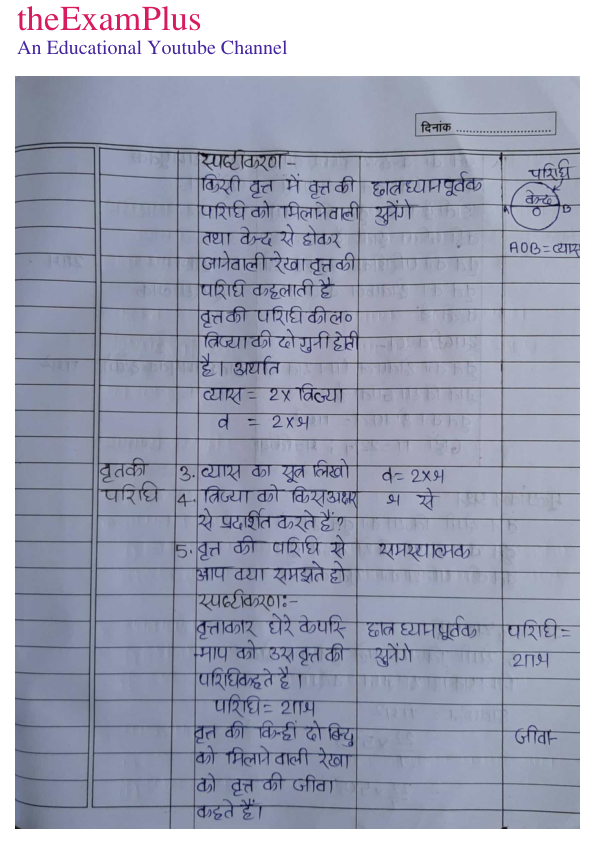 theExamPlus
An Educational Youtube Channel
दिनांक ............................
स्पष्टीकरण:-
किसी वृत्त में वृत्त की
परिधि को मिलानेवाली
तथा केन्द्र से होकर
जानेवाली रेखा वृत्त की
परिधि कहलाती है
वृत्त की परिधि की ल०
त्रिज्या की दो गुनी होती
है। अर्थात
व्यास = 2 x त्रिज्या
व = 2 x श्र
छात्र ध्यानपूर्वक
सुनेंगे
परिधि
केन्द्र
A O B
AOB = व्यास
वृतकी
परिधि
3. व्यास का सूत्र लिखो
व = 2 x श्र
4. त्रिज्या को किस अक्षर
से प्रदर्शित करते हैं?
श्र से
5. वृत्त की परिधि से
आप क्या समझते हो
समस्यात्मक
स्पष्टीकरण:-
वृत्ताकार घेरे के परि
-माप को उस वृत्त की
परिधि कहते है।
परिधि = 2πश्र
छात्र ध्यानपूर्वक
सुनेंगे
परिधि =
2πश्र
वृत्त की किन्हीं दो बिन्दु
को मिलाने वाली रेखा
को वृत्त की जीवा
कहते हैं।
जीवा-